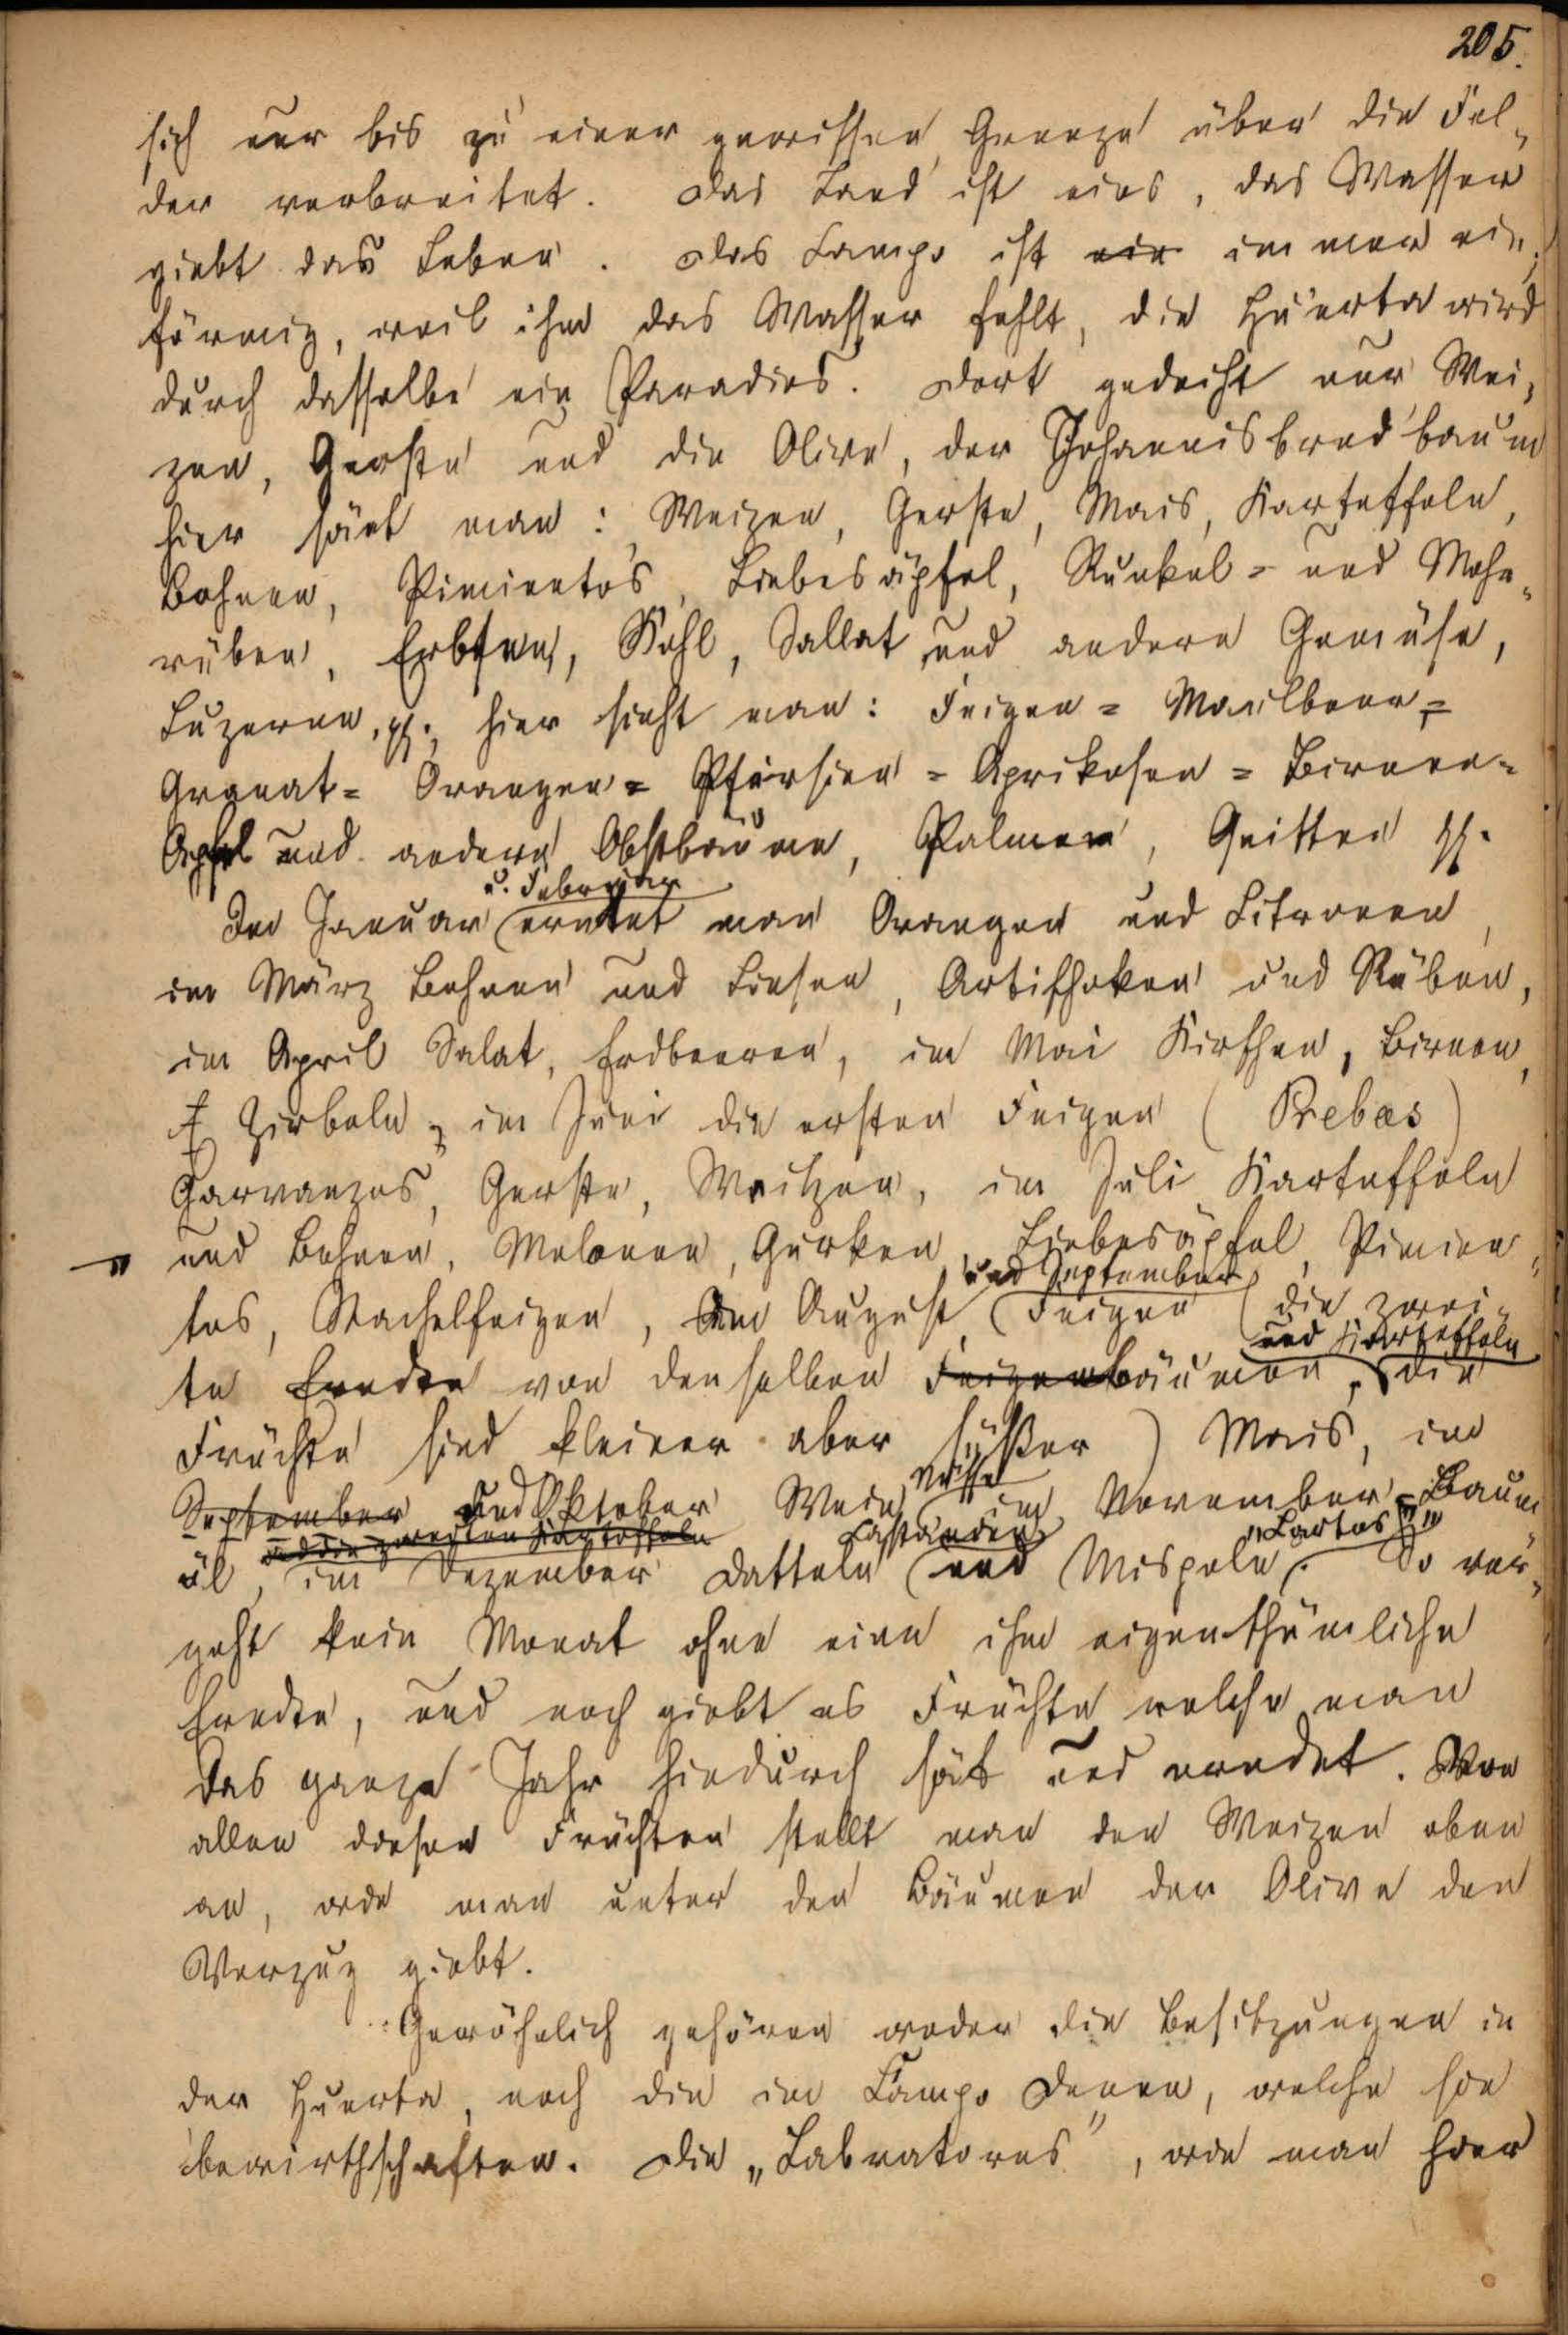 205.
sich nur bis zu einer gewissen Grenze über die Fel-
der verbreitet. Das Land ist eins, das Wasser
giebt das Leben. Das Campo ist ein immer ein-
förmig, weil ihm das Wasser fehlt, die Huerta wird
durch dasselbe ein Paradies. Dort gedeiht nur Wei-
zen, Gerste und die Olive, der Johannisbrodbaum
hier säet man: Weizen, Gerste, Mais, Kartoffeln,
Bohnen, Pimientos, Liebesäpfel, Runkel= und Mohr-
rüben, Erbsen, Kohl, Sallat und andere Gemüse,
Luzerne, pp. hier sieht man: Feigen= Maulbeer=
Granat= Orangen= Pfirsien= Aprikosen= Birnen=
Apfel und andere Obstbäume, Palmen, Quitten pp.
u. Februar
Im Januar erntet man Orangen und Citronen,
im März Bohnen und Linsen, Artischoken und Rüben,
im April Salat, Erdbeeren, im Mai Kirschen, Birnen,
Zwibeln, im Juni die ersten Feigen (Brebas)
Garvanzos, Gerste, Weitzen, im Juli Kartoffeln
und Bohnen, Melonen, Gurken, Liebesäpfel, Pimien-
und September
tos, Stachelfeigen, im August, Feigen (die zwei-
und Kartoffeln
te Erndte von denselben Feigenbäumen, die
Früchte sind kleiner aber süßer) Mais, im
Nüsse
September und Oktober Wein, im November Baum-
und die zweiten Kartoffeln Castanien "Lartos"
öl, im Dezember Datteln und Mispeln. So ver-
geht kein Monat ohne eine ihm eigenthümliche
Erndte, und noch giebt es Früchte welche man
das ganze Jahr hindurch sät und erndet. Von
allen diesen Früchten stellt man den Weizen oben
an, wie man unter den Bäumen der Olive den
Vorzug giebt.
Gewöhnlich gehören weder die Besitzungen in
der Huerta, noch die im Campo Denen, welche sie
bewirthschaften. Die „Labratores", wie man hier